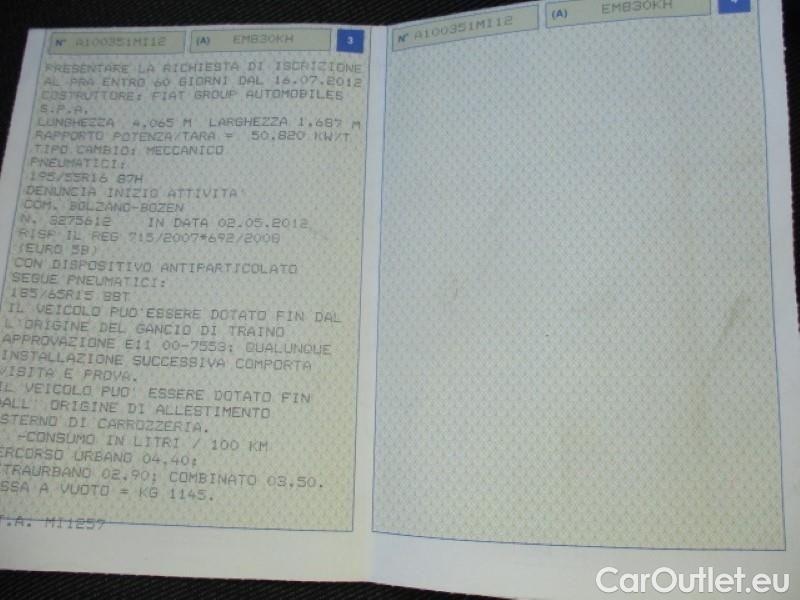 N° A100351MI12 (A) EM830KH 3
PRESENTARE LA RICHIESTA DI ISCRIZIONE
AL PRA ENTRO 60 GIORNI DAL 16.07.2012
COSTRUTTORE: FIAT GROUP AUTOMOBILES
S.P.A.
LUNGHEZZA 4,065 M LARGHEZZA 1,687 M
RAPPORTO POTENZA/TARA = 50,820 KW/T
TIPO CAMBIO: MECCANICO
PNEUMATICI:
195/55R16 87H
DENUNCIA INIZIO ATTIVITA'
COM. BOLZANO-BOZEN
N. 3275612 IN DATA 02.05.2012
RISP IL REG 715/2007*692/2008
(EURO 5B)
CON DISPOSITIVO ANTIPARTICOLATO
SEGUE PNEUMATICI:
185/65R15 88T
IL VEICOLO PUO'ESSERE DOTATO FIN DAL
L'ORIGINE DEL GANCIO DI TRAINO
APPROVAZIONE E11 00-7553; QUALUNQUE
INSTALLAZIONE SUCCESSIVA COMPORTA
VISITA E PROVA.
IL VEICOLO PUO' ESSERE DOTATO FIN
DALL' ORIGINE DI ALLESTIMENTO
STERNO DI CARROZZERIA.
-CONSUMO IN LITRI / 100 KM
ERCORSO URBANO 04,40;
TRAURBANO 02,90; COMBINATO 03,50.
SSA A VUOTO = KG 1145.
T.A. MI1257
N° A100351MI12 (A) EM830KH 4
CarOutlet.eu